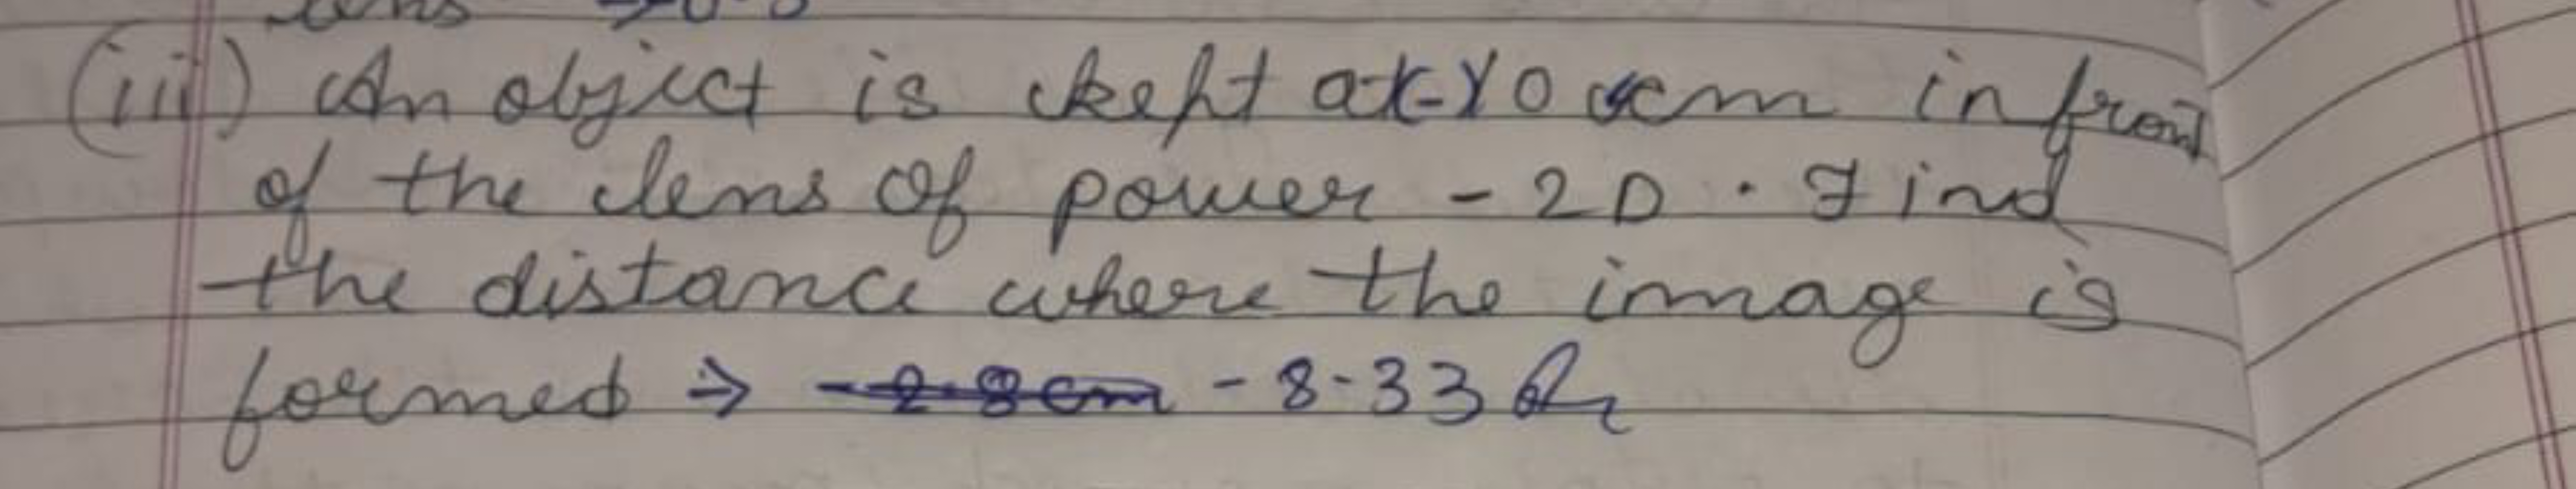 (iii) An object is kept at -10 cm in front
of the lens of power - 2D . Find
the distance where the image is
formed ⇒ -2.8cm -8.33